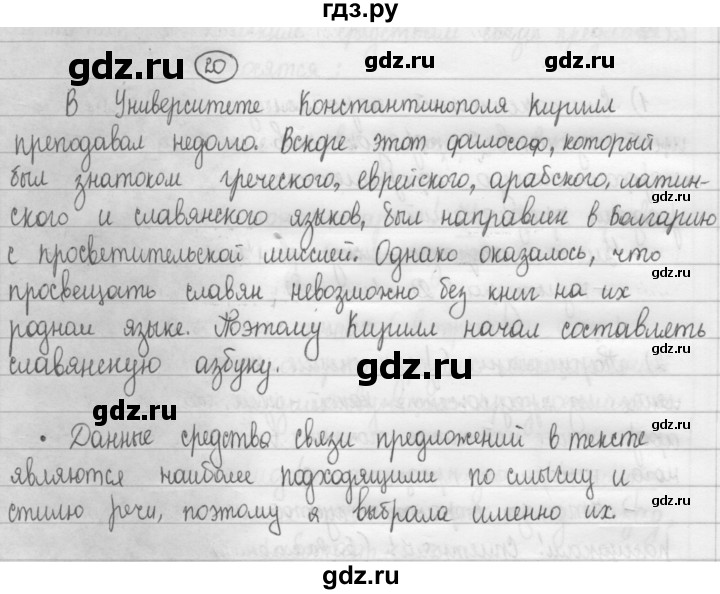 гдз.ру
gdz.ru gdz.ru gdz.ru
20
В Университете Константинополя Кирилл
преподавал недолго. Вскоре этот философ, который
был знатоком греческого, еврейского, арабского, латин-
gdz.ru
ского и славянского языков, был направлен в Болгарию
с просветительской миссией. Однако оказалось, что
gdz.ru
просвещать славян невозможно без книг на их
родном языке. Поэтому Кирилл начал составлять
gdz.ru
славянскую азбуку.
gdz.ru
gdz.ru gdz.ru
• Данные средства связи предложений в тексте
являются наиболее подходящими по смыслу и
стилю речи, поэтому я выбрала именно их.
gdz.ru
gdz.ru